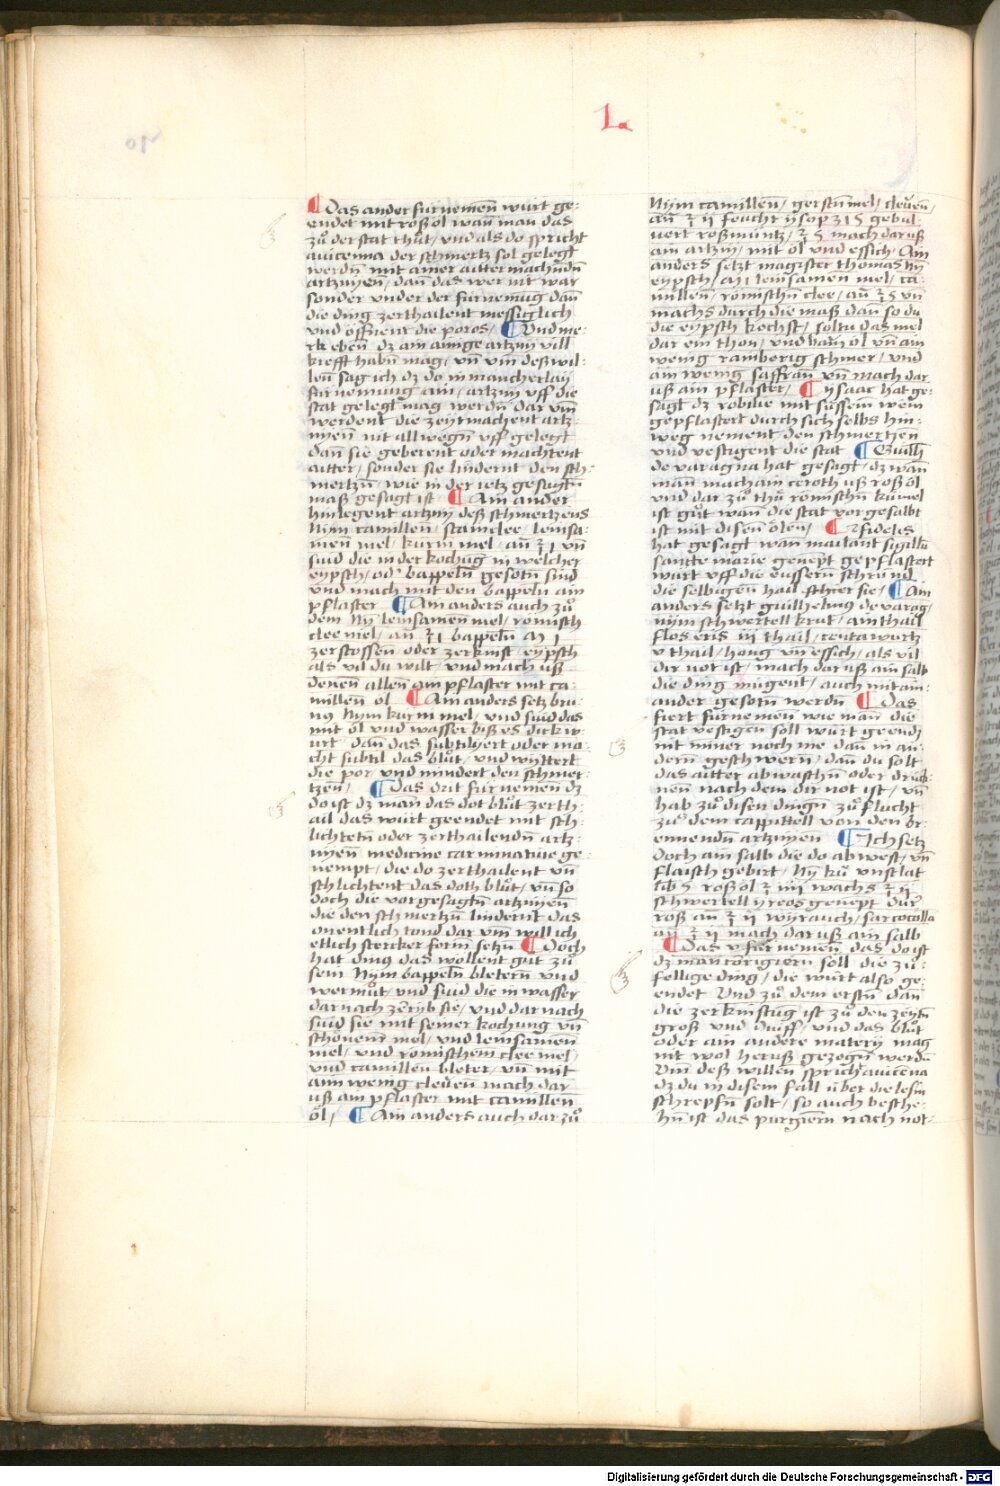 La
¶ Das ander fürnemen würt ge-
endet mit roß öl wan̄ man das
zů der stat thůt / vnd als do spricht
auicenna der schmertz sol gelegt
werdn̄ mit ainer aitter machndn̄
artznyen / dan̄ das wer nit war
sonder vnder der fürnemūg dan̄
die ding zerthailent messiglich
vnd öffnent die poros / ¶ Vnd me-
rk eben dz am ainige artznÿ vill
krefft habn̄ mag / vn̄ vm̄ deß wil-
len̄ sag ich dz do in mancherlaÿ
fürnemung ain / artznÿ vff die
stat gelegt mag werdn̄ dar vm̄
werdent die zeytmachent artz-
nyen̄ nit allwegn̄ vff gelegt
dan̄ sie geberent oder machtent
aitter / sonder sie lindernt den sch-
mertzn̄ / wie in der ietz gesagtn̄
maß gesagt ist ¶ Ain ander
hinlegent artznÿ deß schmertzens
Nÿm camillen̄ / stainclee / leinsa-
men̄ mel / kürn mel / an̄ ℥ 1 vn̄
süd die in der kochūg in welcher
eypsch / od' bappeln̄ gesotn̄ sind
vnd mach mit den bappeln̄ ain
pflaster ¶ Ain anders auch zů
dem Nÿ leinsamen mel / römisch
clee mel / an̄ ℥ 1 bappeln̄ m 1
zerstossen oder zerkinst / eypsch
als vil du wilt / vnd mach uß
denen̄ allen̄ ain pflaster mit ca-
millen̄ öl ¶ Ain anders setz bru-
nꝰ Nÿm kurn mel / vnd süd das
mit öl vnd wasser biß es dick w-
urt dan̄ das subtiliert oder ma-
cht subtil das blůt / vnd wyttert
die por vnd mindert den schmer-
tzen̄ / ¶ Das drit fürnemen̄ dz
do ist dz man̄ das dot blůt zerth-
ail das würt geendet mit sch-
lichtetn̄ oder zerthailendn̄ artz-
nyen̄ medicine carminatiue ge-
nempt / die do zerthailent vn̄
schlichtent das doth blůt / vn̄ so
doch die vorgesagtn̄ artznyen̄
die den schmertzn̄ lindernt das
onentlich tond dar vm̄ will ich
etlich stercker form setzn̄ ¶ Doch
hat ding das wollent gůt zů
sein Nÿm bappeln̄ bletern̄ vnd
wermůt / vnd süd die in wasser
darnach zerÿb sie / vnd dar nach
süd sie mit seiner kochung vn̄
schönem̄ mel / vnd leinsamen̄
mel / vnd römischem clee mel /
vnd camillen bleter / vn̄ mit
ainn wenig cleüen̄ mach dar
uß am pflaster mit camillen̄
öl / ¶ Ain anders auch dar zů
Nÿm camillen̄ / gerstn̄ mel / cleüen̄ /
an̄ ℥ ij feucht ysop ʒ 1 5 gebul-
uert roßmüntz / ℥ 5 mach daruß
ain artznÿ / mit öl vnd essich / Ain
anders setzt magister thomas nÿ
eypsch / m 1 leinsamen mel / ca-
millen̄ / römischn̄ clee / an̄ ℥ 5 vn̄
machs durch die maß dan̄ so du
die eypsch kochst / soltu das mel
dar ein thon / vnd ham̄ öl vn̄ ain
wenig ramborig schmer / vnd
ain wenig saffran̄ vn̄ mach dar
uß ain pflaster / ¶ ysaac hat ge-
sagt dz robilie mit süssem wein
gepflastert durch sich selbs hin-
weg nement den schmertzen̄
vnd vestigent die stat ¶ Guilh̄
de varagna hat gesagt / dz wan̄
man̄ mach ain ceroth uß roß öl
vnd dar zů thů römischn̄ kümel
ist gůt wan̄ die stat vor gesalbt
ist mit disen ölen̄ / ¶ Rfidelis
hat gesagt wan̄ mailant sigillū
sancte marie genēpt gepflastert
würt vff die eussern̄ schrünnd
die selbigen̄ hail schier sie / ¶ Ain
anders setzt guilhelmꝰ de varaḡ
nÿm schwertell krut / am thail
flos eris iij thail / reuta wurtz
v thail / hong vn̄ essich / als vil
dir not ist / mach dar uß ain salb
die ding mügent / auch mit ain-
ander gesotn̄ werdn̄ ¶ Das
fiert fürnemen̄ wie man̄ die
stat vestigen̄ soll würt geend
nit miner noch me dan̄ in an-
dern̄ geschwern̄ / dan̄ du solt
das aitter abwaschn̄ oder drück-
nen̄ nach dem dir not ist / vn̄
hab zů disen dingn̄ zů flucht
zů dem cappittell von den br-
ennendn̄ artznyen̄ ¶ Ich setz
doch ain salb die do abwest / vn̄
flaisch gebirt / Nÿ ků vnslat
lib 5 roß öl ℥ iiij wachs ℥ ij
schwertell yreos genēpt dürr
roß an̄ ℥ ij wÿrauch / sarcocolla
an̄ ℥ ij mach dar uß ain salb
¶ Das v fürnemen̄ das do ist
dz man̄ corrigiern̄ soll die zů-
fellige ding / die würt also ge-
endet Vnd zů dem erstn̄ dan̄
die zerkinstūg ist zů den zeytn̄
groß vnd duiff / vnd das blůt
oder ain andere matery mag
nit wol heruß gezogn̄ werdn̄
Vm̄ deß willen sprich auicēna
dz du in disem fall über die lefftz
schrepfn̄ solt / so auch besche-
hn̄ ist das purgiern̄ nach not-
Digitalisierung gefördert durch die Deutsche Forschungsgemeinschaft - DFG